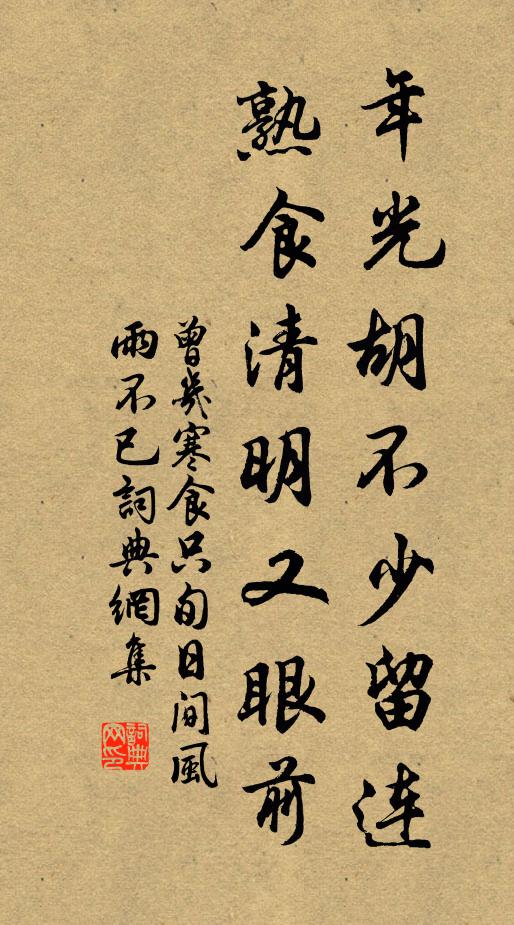 年光胡不少留連
熟食清明又眼前
曾幾寒食只旬日間風
雨不已詞典網集
詞典
網印